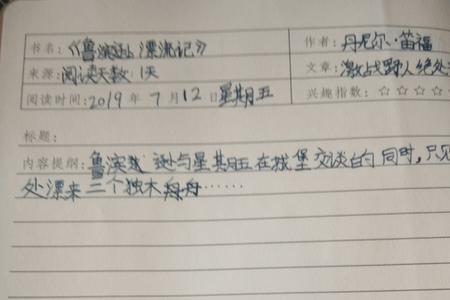 书名：《鲁滨逊漂流记》 作者：丹尼尔·笛福
来源：阅读天数：1天 文章：激战野人绝处
阅读时间：2019年7月12日星期五 兴趣指数：☆☆☆☆
标题：
内容提纲：鲁滨逊与星期五在城堡交谈的同时，只见
处漂来三个独木舟……